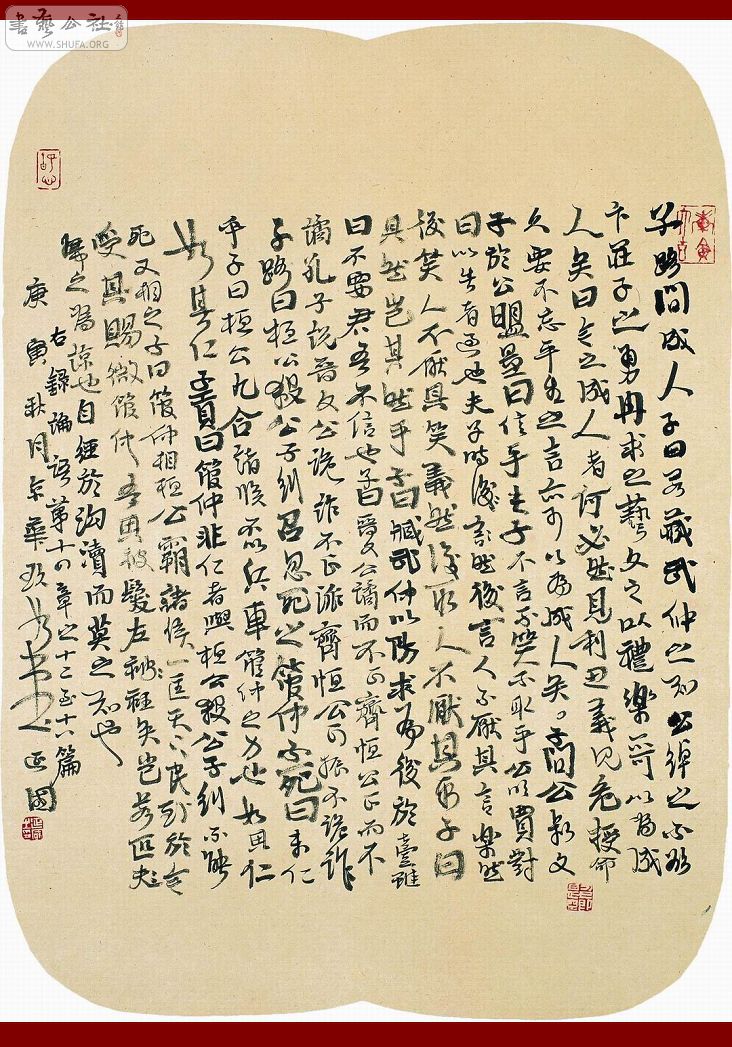 書藝公社
WWW.SHUFA.ORG
子路問成人子曰若藏武仲之知公綽之不欲
卞莊子之勇冉求之藝文之以禮樂亦可以為成
人矣曰今之成人者何必然見利思義見危授命
久要不忘平生之言亦可以為成人矣。子問公叔文
子於公盟賈曰信乎夫子不言不笑不取乎公明賈對
曰以告者過也夫子時後言然後言人不厭其言樂然
後笑人不厭其笑義然後取人不厭其取子曰
其然豈其然乎子曰臧武仲以防求為後於魯雖
曰不要君吾不信也子曰晉文公譎而不正齊恒公正而不
譎孔子說晉文公詭詐不正派齊恒公正派不詭詐
子路曰桓公殺公子糾召忽死之管仲不死曰未仁
乎子曰桓公九合諸侯不以兵車管仲之力也如其仁
如其仁子貢曰管仲非仁者與桓公殺公子糾不能
死又相之子曰管仲相桓公霸諸侯一匡天下民到於今
受其賜微管仲吾其被髮左衽矣豈若匹夫
婦之為諒也自經於溝瀆而莫之知也
右錄論語第十四章之十二至十六篇
庚寅秋月京華
正國